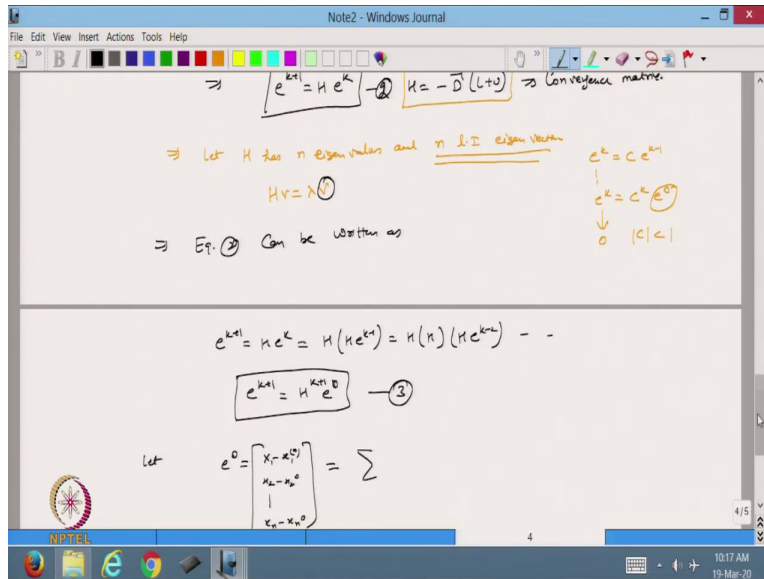 Note2 - Windows Journal
File Edit View Insert Actions Tools Help
⇒ e^{k+1} = H e^k — ② H = -D^{-1}(L+U) ⇒ Convergence matrix.
⇒ Let H has n eigenvalues and n L.I eigen vectors
Hv = λv
e^k = C e^{k-1}
e^k = C^k e^0
↓
0 |C|<1
⇒ Eq. ② Can be written as
e^{k+1} = He^k = H(He^{k-1}) = H(H)(He^{k-2}) - -
e^{k+1} = H^{k+1} e^0 — ③
Let e^0 = [x_1 - x_1^{(0)}
x_2 - x_2^0
|
x_n - x_n^0] = Σ
NPTEL
4
4/5
10:17 AM
19-Mar-20